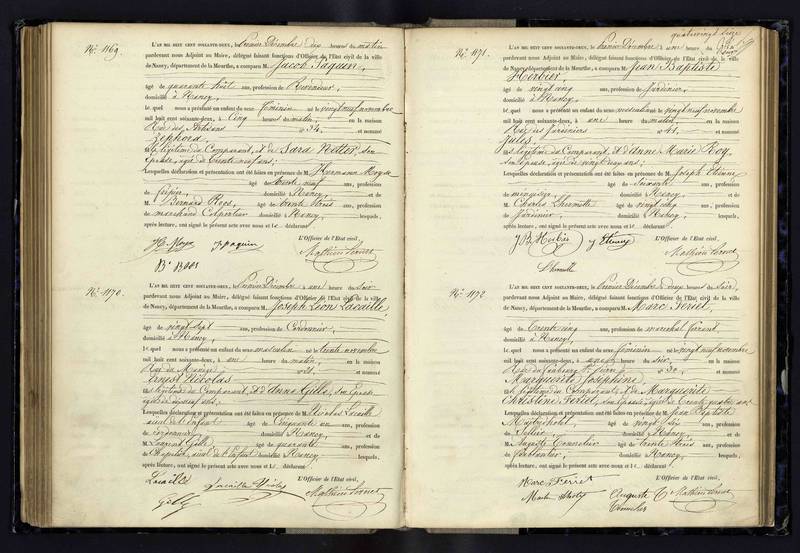 No. 1169.
L'AN MIL HUIT CENT SOIXANTE-DEUX, le Premier Décembre dix heures du matin
pardevant nous Adjoint au Maire, délégué faisant fonctions d'Officier de l'Etat civil de la ville
de Nancy, département de la Meurthe, a comparu M. Jacob Paquin,
âgé de quarante huit ans, profession de Revendeur,
domicilié à Nancy,
Lequel nous a présenté un enfant du sexe féminin né le vingt neuf novembre
mil huit cent soixante-deux, à Cinq heures du matin, en la maison
Rue des Artisans no 34, et nommé
Zephora,
fille légitime du Comparant, et de Sara Netter, son
Epouse, agée de trente neuf ans;
Lesquelles déclaration et présentation ont été faites en présence de M. Hermann Meyer
âgé de trente neuf ans, profession
de fripier, domicilié Nancy, et de
M. Bernard Roos, âgé de trente trois ans, profession
de marchand Colporteur domicilié Nancy, lesquels,
après lecture, ont signé le présent acte avec nous et le déclarant
L'Officier de l'Etat civil,
Mathieu
No. 1170.
L'AN MIL HUIT CENT SOIXANTE-DEUX, le Premier Décembre à une heure du soir
pardevant nous Adjoint au Maire, délégué faisant fonctions d'Officier de l'Etat civil de la ville
de Nancy, département de la Meurthe, a comparu M. Joseph Léon Lacaille,
âgé de vingt sept ans, profession de Cordonnier,
domicilié à Nancy,
Lequel nous a présenté un enfant du sexe masculin né le trente novembre
mil huit cent soixante-deux, à une heure du matin, en la maison
Rue du Manège no 21, et nommé
Ernest Nicolas
fils légitime du Comparant, et d'Anne Gille, son Epouse
agée de ans;
Lesquelles déclaration et présentation ont été faites en présence de M. Nicolas Lacaille
aieul de l'Enfant âgé de Cinquante un ans, profession
de Cordonnier, domicilié Nancy, et de
M. Laurent Gille âgé de quarante ans, profession
de Chapelier, aieul de l'Enfant domicilié Nancy, lesquels,
après lecture, ont signé le présent acte avec nous et le déclarant
L'Officier de l'Etat civil,
Lacaille
Mathieu
quatrevingt seize
No. 1171.
L'AN MIL HUIT CENT SOIXANTE-DEUX, le Premier Décembre à une heure du soir
pardevant nous Adjoint au Maire, délégué faisant fonctions d'Officier de l'Etat civil de la ville
de Nancy, département de la Meurthe, a comparu M. Jean Baptiste
Herbier,
âgé de vingt cinq ans, profession de Jardinier,
domicilié à Nancy,
Lequel nous a présenté un enfant du sexe masculin né le vingt neuf novembre
mil huit cent soixante-deux, à une heure du matin, en la maison
Rue des Jardiniers no 41, et nommé
Jules,
fils légitime du Comparant, et d'Anne Marie Roy,
son Epouse, agée de vingt deux ans;
Lesquelles déclaration et présentation ont été faites en présence de M. Joseph Etienne
âgé de Soixante ans, profession
de domicilié Nancy, et de
M. Charles Lhermitte âgé de vingt cinq ans, profession
de Jardinier, domicilié Nancy, lesquels,
après lecture, ont signé le présent acte avec nous et le déclarant
L'Officier de l'Etat civil,
J B Herbier
Mathieu
No. 1172
L'AN MIL HUIT CENT SOIXANTE-DEUX, le Premier Décembre à deux heures du Soir,
pardevant nous Adjoint au Maire, délégué faisant fonctions d'Officier de l'Etat civil de la ville
de Nancy, département de la Meurthe, a comparu M. Marc Feriet,
âgé de trente cinq ans, profession de maréchal ferrant,
domicilié à Nancy,
Lequel nous a présenté un enfant du sexe féminin né le vingt neuf novembre
mil huit cent soixante-deux, à heure du soir, en la maison
Rue du Faubourg St Pierre no 30, et nommé
Marguerite Joséphine
fille légitime du Comparant, et de Marguerite
Christine Feriet, son Epouse, agée de Trente quatre ans
Lesquelles déclaration et présentation ont été faites en présence de M. Jean Baptiste
âgé de vingt six ans, profession
de Sellier, domicilié Nancy, et de
M. Auguste âgé de trente trois ans, profession
de domicilié Nancy, lesquels,
après lecture, ont signé le présent acte avec nous et le déclarant
L'Officier de l'Etat civil,
Marc Ferriet
Auguste
Mathieu